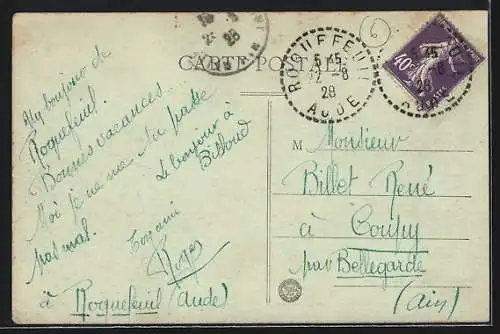 CARTE POSTALE
ROQUEFEUIL
5 45
22 - 8
28
AUDE
40c
Un bonjour de
Roquefeuil.
Bonnes vacances...
Moi je ne me
pas mal.
Le bonjour à
Billoud
Ton ami
Roger
à Roquefeuil (Aude)
M Monsieur
Billet René
à Coupy
par Bellegarde
(Ain)